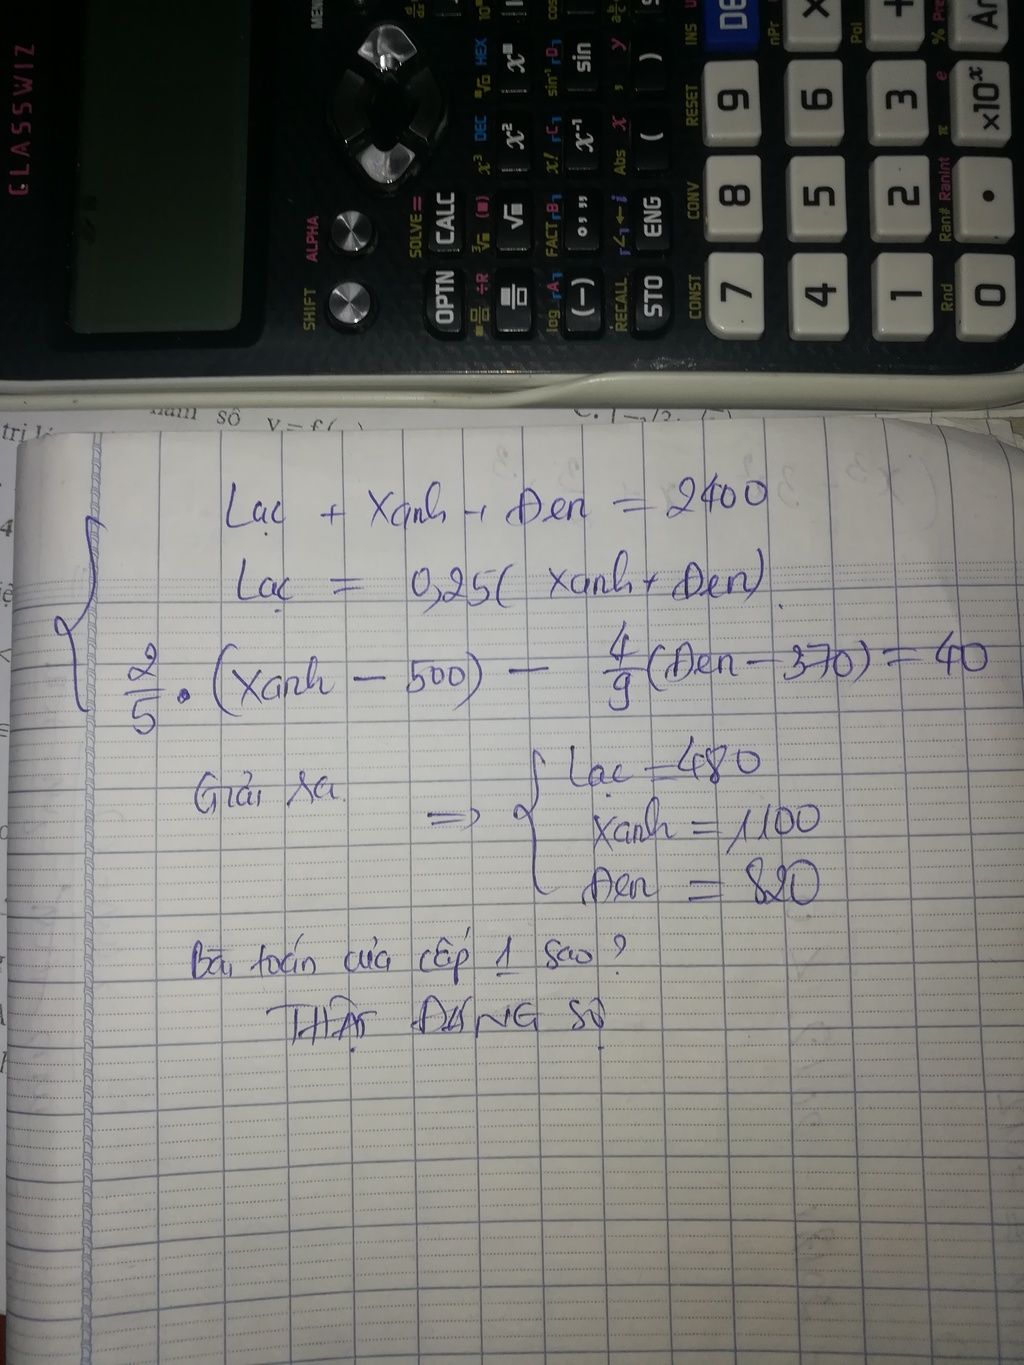 CLASSWIZ
SHIFT ALPHA MEN
OPTN CALC
SOLVE =
√ x² x^■
(–) °,,, x⁻¹ sin
STO ENG ( )
RECALL Abs x , y
CONST CONV RESET INS
7 8 9 DE
4 5 6 ×
1 2 3 +
Rnd Ran# RanInt π e % Pre
0 • ×10ˣ An
số y = f(
Lạc + Xanh + Đen = 2400
Lạc = 0,25( Xanh + Đen)
2/5 . (Xanh – 500) – 4/9 (Đen – 370) = 40
Giải ra => Lạc = 480
Xanh = 1100
Đen = 820
Bài toán của cấp 1 sao?
THẬT ĐÁNG SỢ